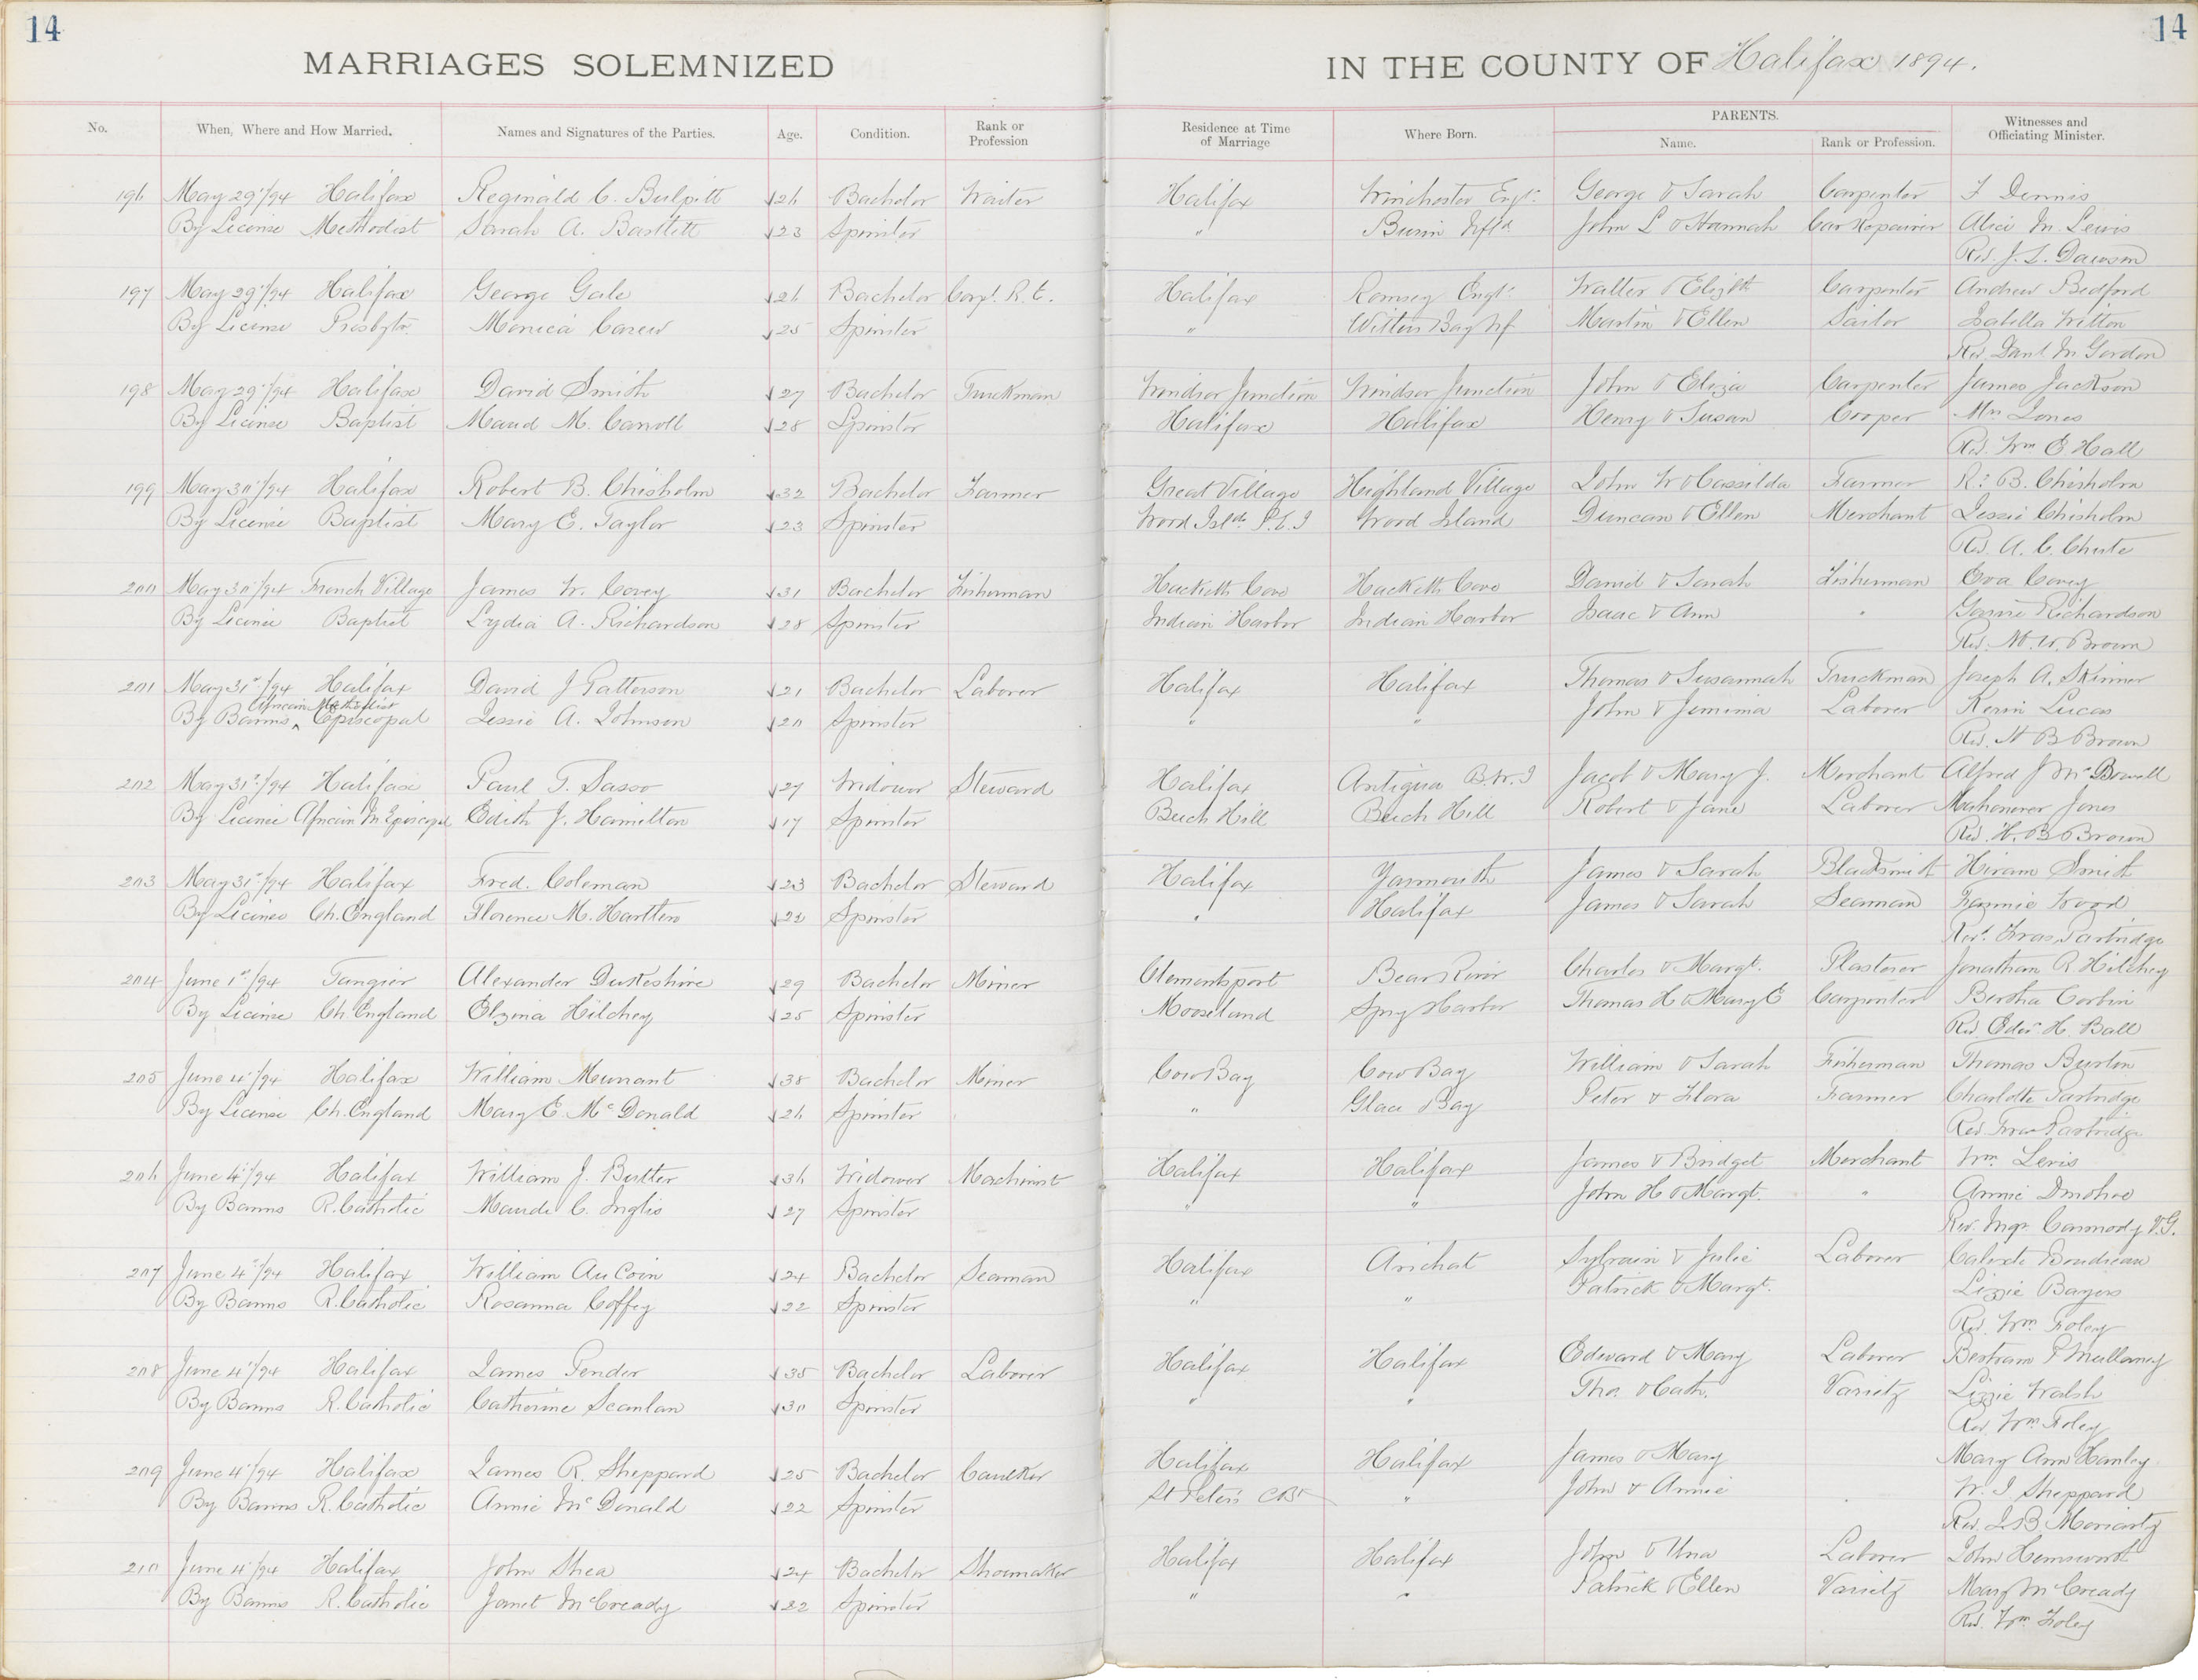 14
14
MARRIAGES SOLEMNIZED IN THE COUNTY OF Halifax 1894.
No. When, Where and How Married. Names and Signatures of the Parties. Age. Condition. Rank or Profession Residence at Time of Marriage Where Born. PARENTS. Name. Rank or Profession. Witnesses and Officiating Minister.
196 May 29"/94 Halifax Reginald C. Bulpitt 26 Bachelor Waiter Halifax Winchester Engd. George & Sarah Carpenter F Dennis
By License Methodist Sarah A. Bartlett 23 Spinster " Burin Nfld John L & Hannah Car Repairer Alice M. Lewis
Rev. J. L. Dawson
197 May 29"/94 Halifax George Gale 26 Bachelor Corpl. R. E. Halifax Romsey Engd. Walter & Elizth Carpenter Andrew Bedford
By License Presbytn Monica Carew 25 Spinster " Witless Bay Nf Martin & Ellen Sailor Isabella Witton
Rev. Danl M Gordon
198 May 29"/94 Halifax David Smith 27 Bachelor Truckman Windsor Junction Windsor Junction John & Eliza Carpenter James Jackson
By License Baptist Maud M. Carroll 28 Spinster Halifax Halifax Henry & Susan Cooper Mrs Jones
Rev. Wm E Hall
199 May 30"/94 Halifax Robert B. Chisholm 32 Bachelor Farmer Great Village Highland Village John W & Cassilda Farmer R. B. Chisholm
By License Baptist Mary E. Taylor 23 Spinster Wood Islds P.E.I Wood Island Duncan & Ellen Merchant Jessie Chisholm
Rev. A. C. Chute
200 May 30"/94 French Village James W. Covey 31 Bachelor Fisherman Hacketts Cove Hacketts Cove David & Sarah Fisherman Eva Covey
By License Baptist Lydia A. Richardson 28 Spinster Indian Harbor Indian Harbor Isaac & Ann " Richardson
Rev. M. W. Brown
201 May 31st/94 Halifax David J Patterson 21 Bachelor Laborer Halifax Halifax Thomas & Susannah Truckman Joseph A. Skinner
African Methodist
By Banns ^ Episcopal Jessie A. Johnson 20 Spinster " " John & Jemima Laborer Lucas
Rev. H B Brown
202 May 31st/94 Halifax Paul T. Sasso 27 Widower Steward Halifax Antigua B.W.I Jacob & Mary J. Merchant Alfred J
By License African M. Episcopal Edith J. Hamilton 17 Spinster Beech Hill Beech Hill Robert & Jane Laborer Jones
Rev. H. B Brown
203 May 31st/94 Halifax Fred. Coleman 23 Bachelor Steward Halifax Yarmouth James & Sarah Blacksmith Hiram Smith
By License Ch. England Florence M. Hartlen 21 Spinster " Halifax James & Sarah Seaman Fannie Wood
Revd. Fras Partridge
204 June 1st/94 Tangier Alexander Dukeshire 29 Bachelor Miner Clementsport Bear River Charles & Margt. Plasterer Jonathan R Hilchey
By License Ch. England Elzina Hilchey 25 Spinster Mooseland Spry Harbor Thomas H & Mary E Carpenter Bertha Corbin
Rev. Edwd H. Ball
205 June 4"/94 Halifax William Munant 38 Bachelor Miner Cow Bay Cow Bay William & Sarah Fisherman Thomas Burton
By License Ch. England Mary E. McDonald 26 Spinster " Glace Bay Peter & Flora Farmer Charlotte Partridge
Rev. Fras Partridge
206 June 4"/94 Halifax William J. Butler 36 Widower Machinist Halifax Halifax James & Bridget Merchant Wm. Lewis
By Banns R. Catholic Maude C. Inglis 27 Spinster " " John H & Margt. " Annie Donohoe
Rev. Mgr Carmody V.G.
207 June 4"/94 Halifax William AuCoin 24 Bachelor Seaman Halifax Arichat Sylvain & Julie Laborer Calixte Boudreau
By Banns R. Catholic Rosanna Coffey 22 Spinster " " Patrick & Margt. Lizzie Bayers
Rev. Wm. Foley
208 June 4"/94 Halifax James Pender 35 Bachelor Laborer Halifax Halifax Edward & Mary Laborer Bertram P Mullaney
By Banns R. Catholic Catherine Scanlan 30 Spinster " " Tho. & Cath. Lizzie Walsh
Rev. Wm. Foley
209 June 4"/94 Halifax James R. Sheppard 25 Bachelor Caulker Halifax Halifax James & Mary Mary Ann Hanley
By Banns R. Catholic Annie McDonald 22 Spinster St Peters CBn " John & Annie W. J Sheppard
Rev. J. B. Moriarty
210 June 4"/94 Halifax John Shea 24 Bachelor Shoemaker Halifax Halifax John & Una Laborer John Hemsworth
By Banns R. Catholic Janet McCready 22 Spinster " " Patrick & Ellen Mary McCready
Rev. Wm Foley